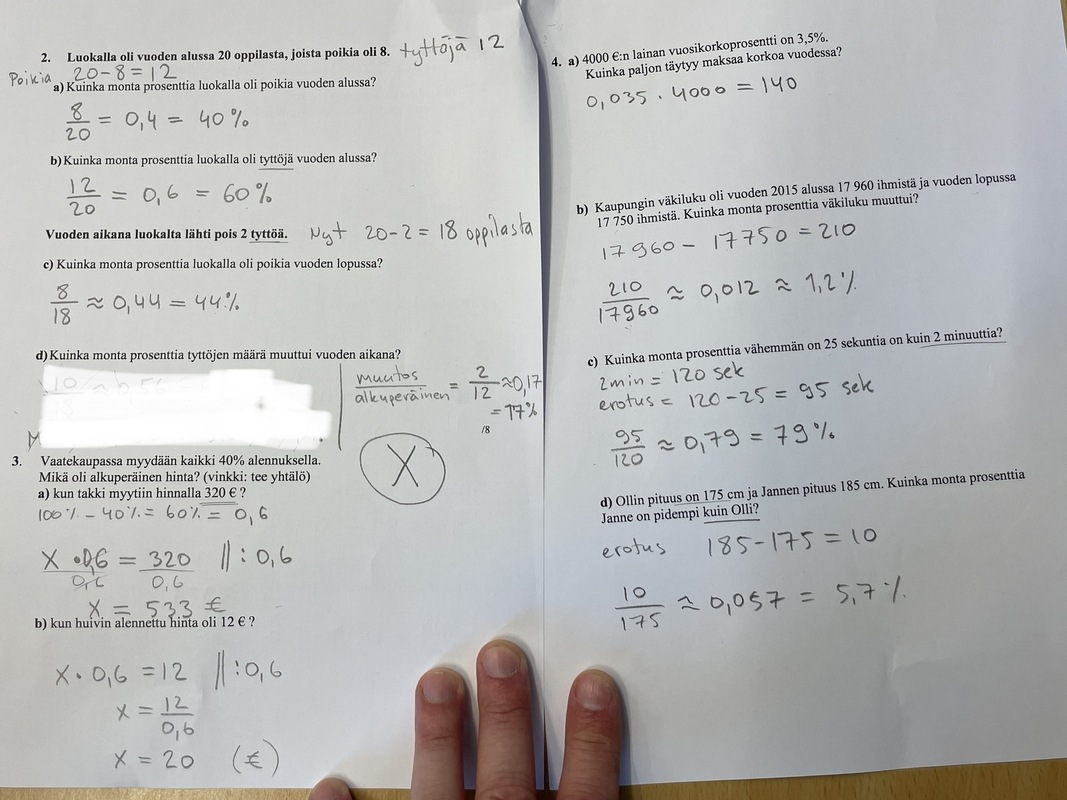 2. Luokalla oli vuoden alussa 20 oppilasta, joista poikia oli 8. tyttöjä 12
Poikia 20-8=12
a) Kuinka monta prosenttia luokalla oli poikia vuoden alussa?
8/20 = 0,4 = 40%
b) Kuinka monta prosenttia luokalla oli tyttöjä vuoden alussa?
12/20 = 0,6 = 60%
Vuoden aikana luokalta lähti pois 2 tyttöä. Nyt 20-2=18 oppilasta
c) Kuinka monta prosenttia luokalla oli poikia vuoden lopussa?
8/18 ≈ 0,44 = 44%
d) Kuinka monta prosenttia tyttöjen määrä muuttui vuoden aikana?
muutos/alkuperäinen = 2/12 ≈ 0,17
= 17%
/8
X
3. Vaatekaupassa myydään kaikki 40% alennuksella.
Mikä oli alkuperäinen hinta? (vinkki: tee yhtälö)
a) kun takki myytiin hinnalla 320 € ?
100% - 40% = 60% = 0,6
x • 0,6 = 320 || : 0,6
0,6 0,6
x = 533 €
b) kun huivin alennettu hinta oli 12 € ?
x • 0,6 = 12 || : 0,6
x = 12/0,6
x = 20 (€)
4. a) 4000 €:n lainan vuosikorkoprosentti on 3,5%.
Kuinka paljon täytyy maksaa korkoa vuodessa?
0,035 • 4000 = 140
b) Kaupungin väkiluku oli vuoden 2015 alussa 17 960 ihmistä ja vuoden lopussa
17 750 ihmistä. Kuinka monta prosenttia väkiluku muuttui?
17960 - 17750 = 210
210/17960 ≈ 0,012 ≈ 1,2%
c) Kuinka monta prosenttia vähemmän on 25 sekuntia on kuin 2 minuuttia?
2min = 120 sek
erotus = 120-25 = 95 sek
95/120 ≈ 0,79 = 79%
d) Ollin pituus on 175 cm ja Jannen pituus 185 cm. Kuinka monta prosenttia
Janne on pidempi kuin Olli?
erotus 185-175=10
10/175 ≈ 0,057 = 5,7%